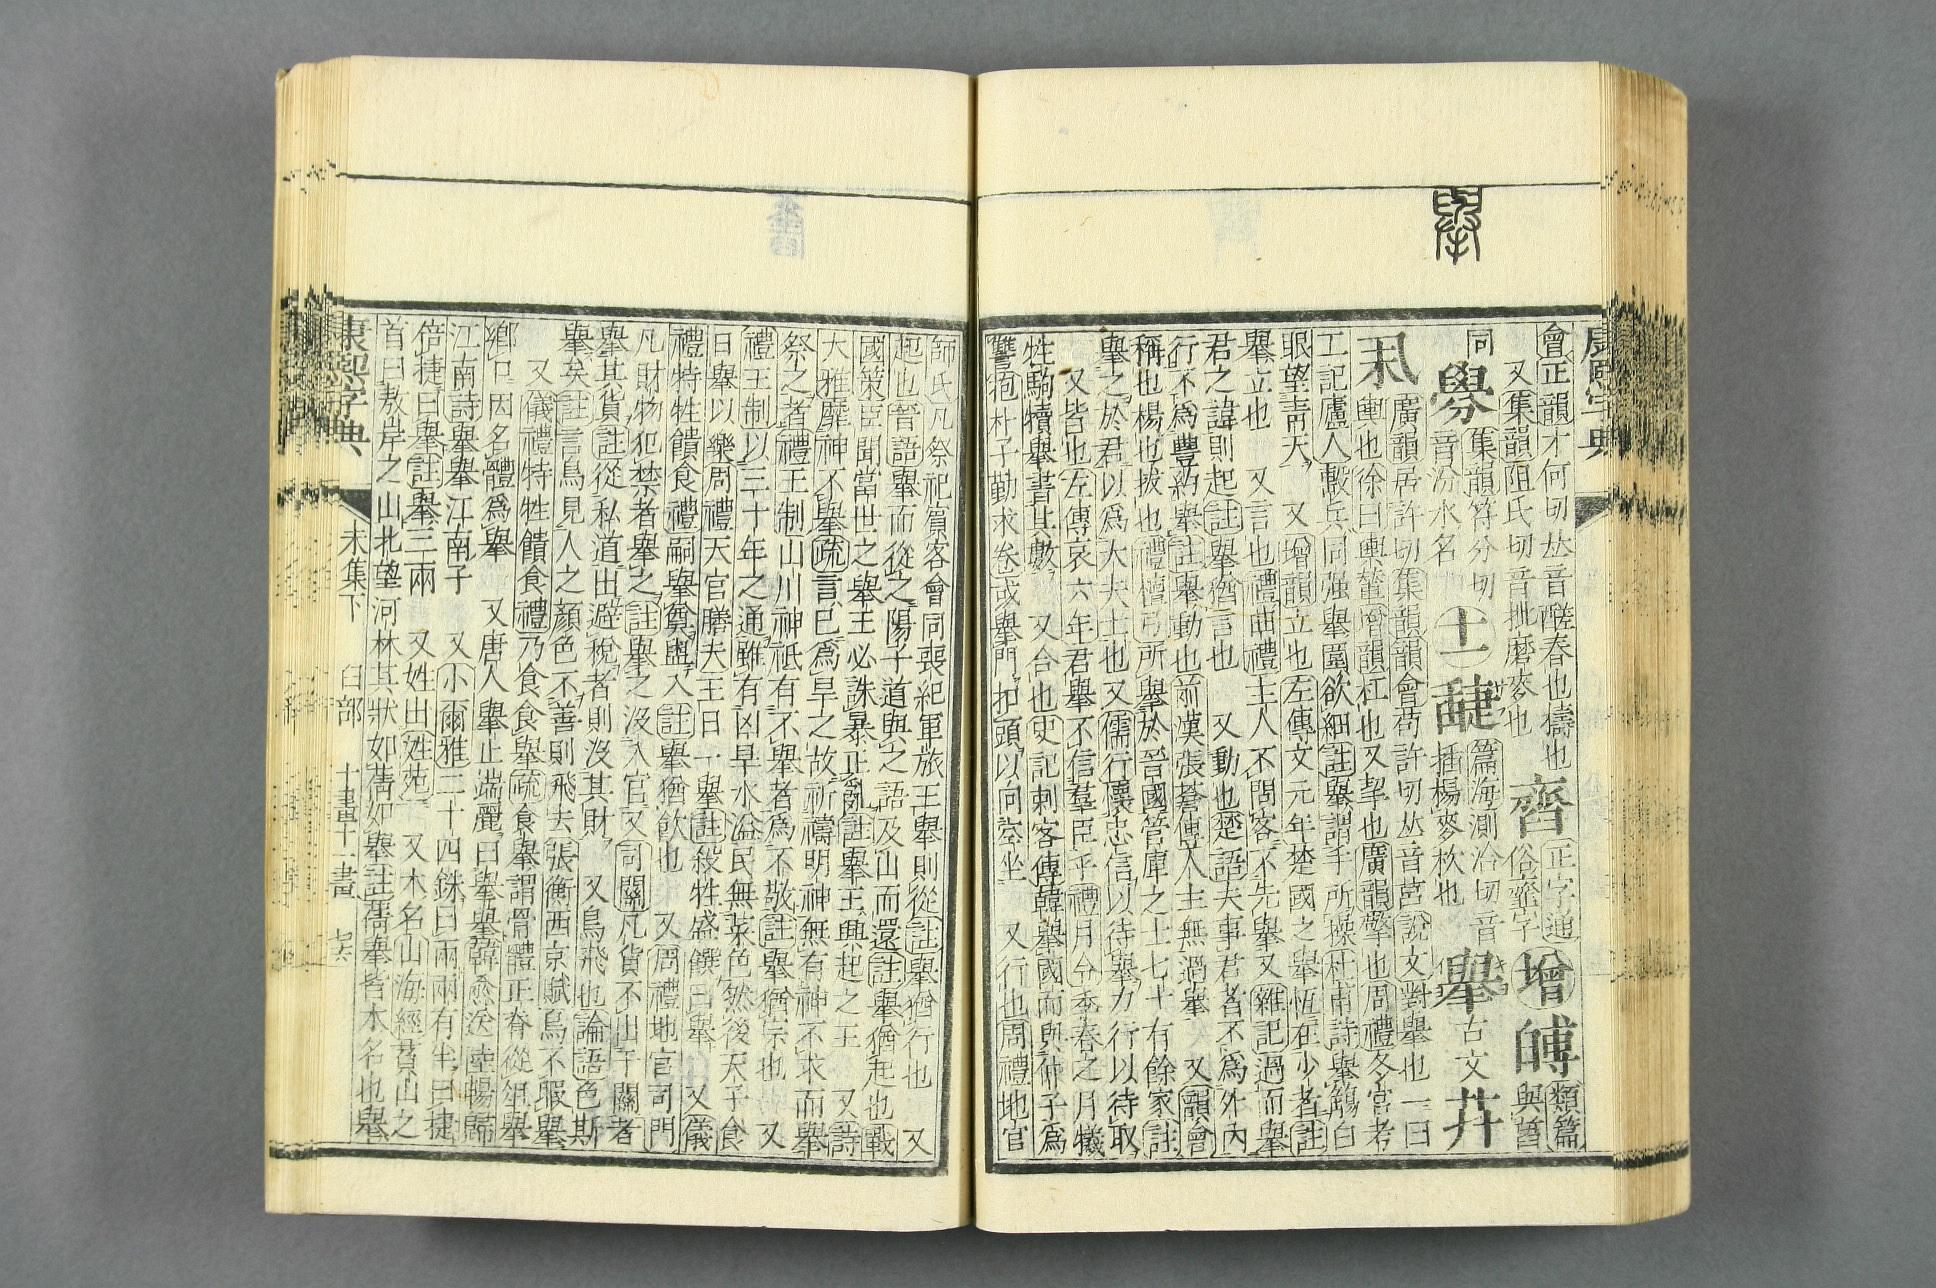 舉
康熙字典
會正韻才何切𠀤音醝舂也擣也
又集韻阻氏切音批磨麥也
正字通
俗齹字
增
類篇
與
同
集韻符分切
音汾水名
十一
篇海測洽切音
插
舉
古文
廣韻居許切集韻韻會苟許切𠀤音莒說文對舉也一曰
輿也徐曰輿輦增韻扛也又挈也廣韻擎也周禮冬官考
工記廬人毄兵同强舉圍欲細註舉謂手所操杜甫詩舉觴白
眼望靑天 又增韻立也左傳文元年楚國之舉恆在少者註
舉立也 又言也禮曲禮主人不問客不先舉又雜記過而舉
君之諱則起註舉猶言也 又動也楚語夫事君者不爲外內
行不爲豐約舉註舉動也前漢張蒼傳人主無過舉 又韻會
稱也楊也拔也禮檀弓所舉於晉國管庫之士七十有餘家註
舉之於君以爲大夫士也又儒行懷忠信以待舉力行以待取
又皆也左傳哀六年君舉不信羣臣乎禮月令季春之月犧
牲駒犢舉書其數 又合也史記刺客傳韓舉國而與仲子爲
讐抱朴子勤求卷或舉門扣頭以向空坐 又行也周禮地官
師氏凡祭祀賔客會同喪紀軍旅王舉則從註舉猶行也 又
起也晉語舉而從之陽子道與之語及山而還註舉猶起也戰
國策臣聞當世之舉王必誅暴正亂註舉王興起之王 又詩
大雅靡神不舉疏言已爲旱之故祈禱明神無有神不求而舉
祭之者禮王制山川神祇有不舉者爲不敬註舉猶宗也 又
禮王制以三十年之通雖有凶旱水溢民無菜色然後天子食
日舉以樂周禮天官膳夫王日一舉註殺牲盛饌曰舉 又儀
禮特牲饋食禮嗣舉奠盥入註舉猶飮也 又周禮地官司門
凡財物犯禁者舉之註舉之沒入官又司關凡貨不出于關者
舉其貨註從私道出避稅者則沒其財 又鳥飛也論語色斯
舉矣註言鳥見人之顏色不善則飛去張衡西京賦鳥不暇舉
又儀禮特牲饋食禮乃食食舉疏食舉謂骨體正脊從俎舉
鄕口因名體爲舉 又唐人舉止端麗曰舉舉韓愈送陸暢歸
江南詩舉舉江南子 又小爾雅二十四銖曰兩兩有半曰捷
倍捷曰舉註舉三兩 又姓出姓苑 又木名山海經萯山之
首曰敖岸之山北望河林其狀如蒨如舉註蒨舉皆木名也舉
康熙字典 未集下 臼部 十畫十一畫 七六